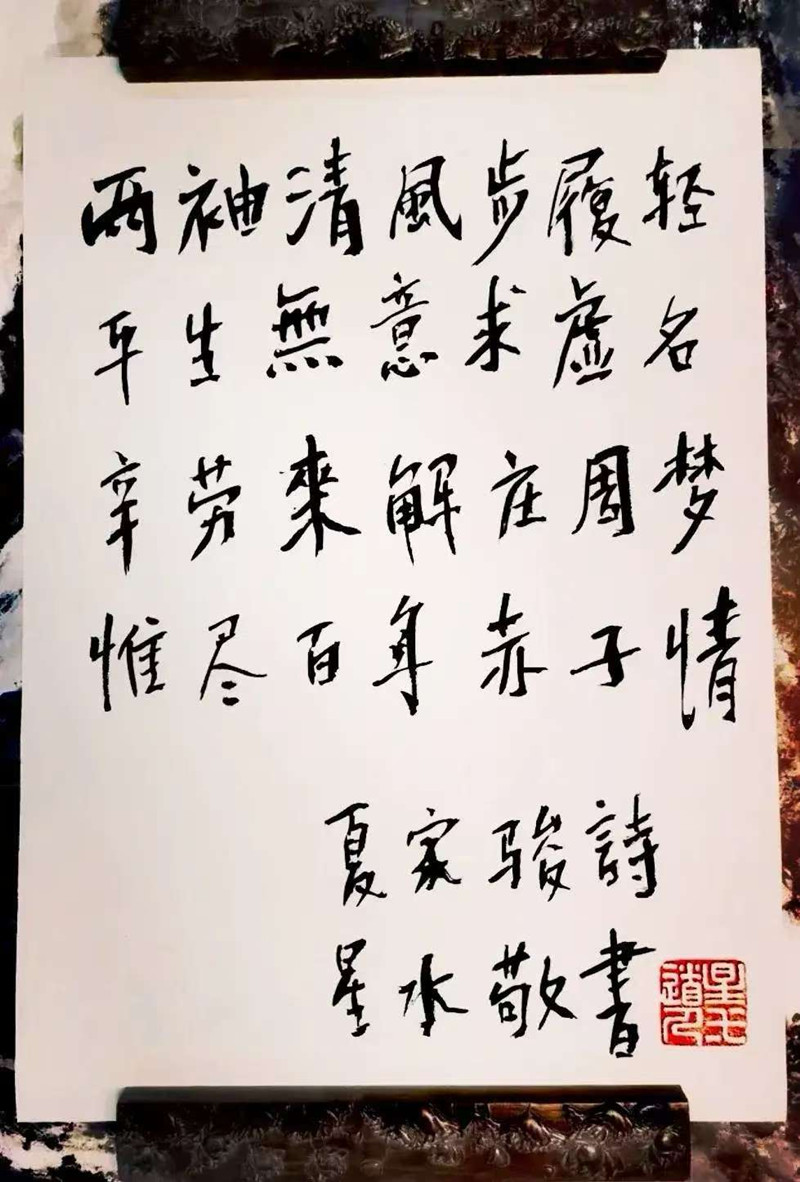 两袖清風步履轻
平生無意求虚名
辛劳來解庄周梦
惟尽百年赤子情
夏家骏詩
星水敬書